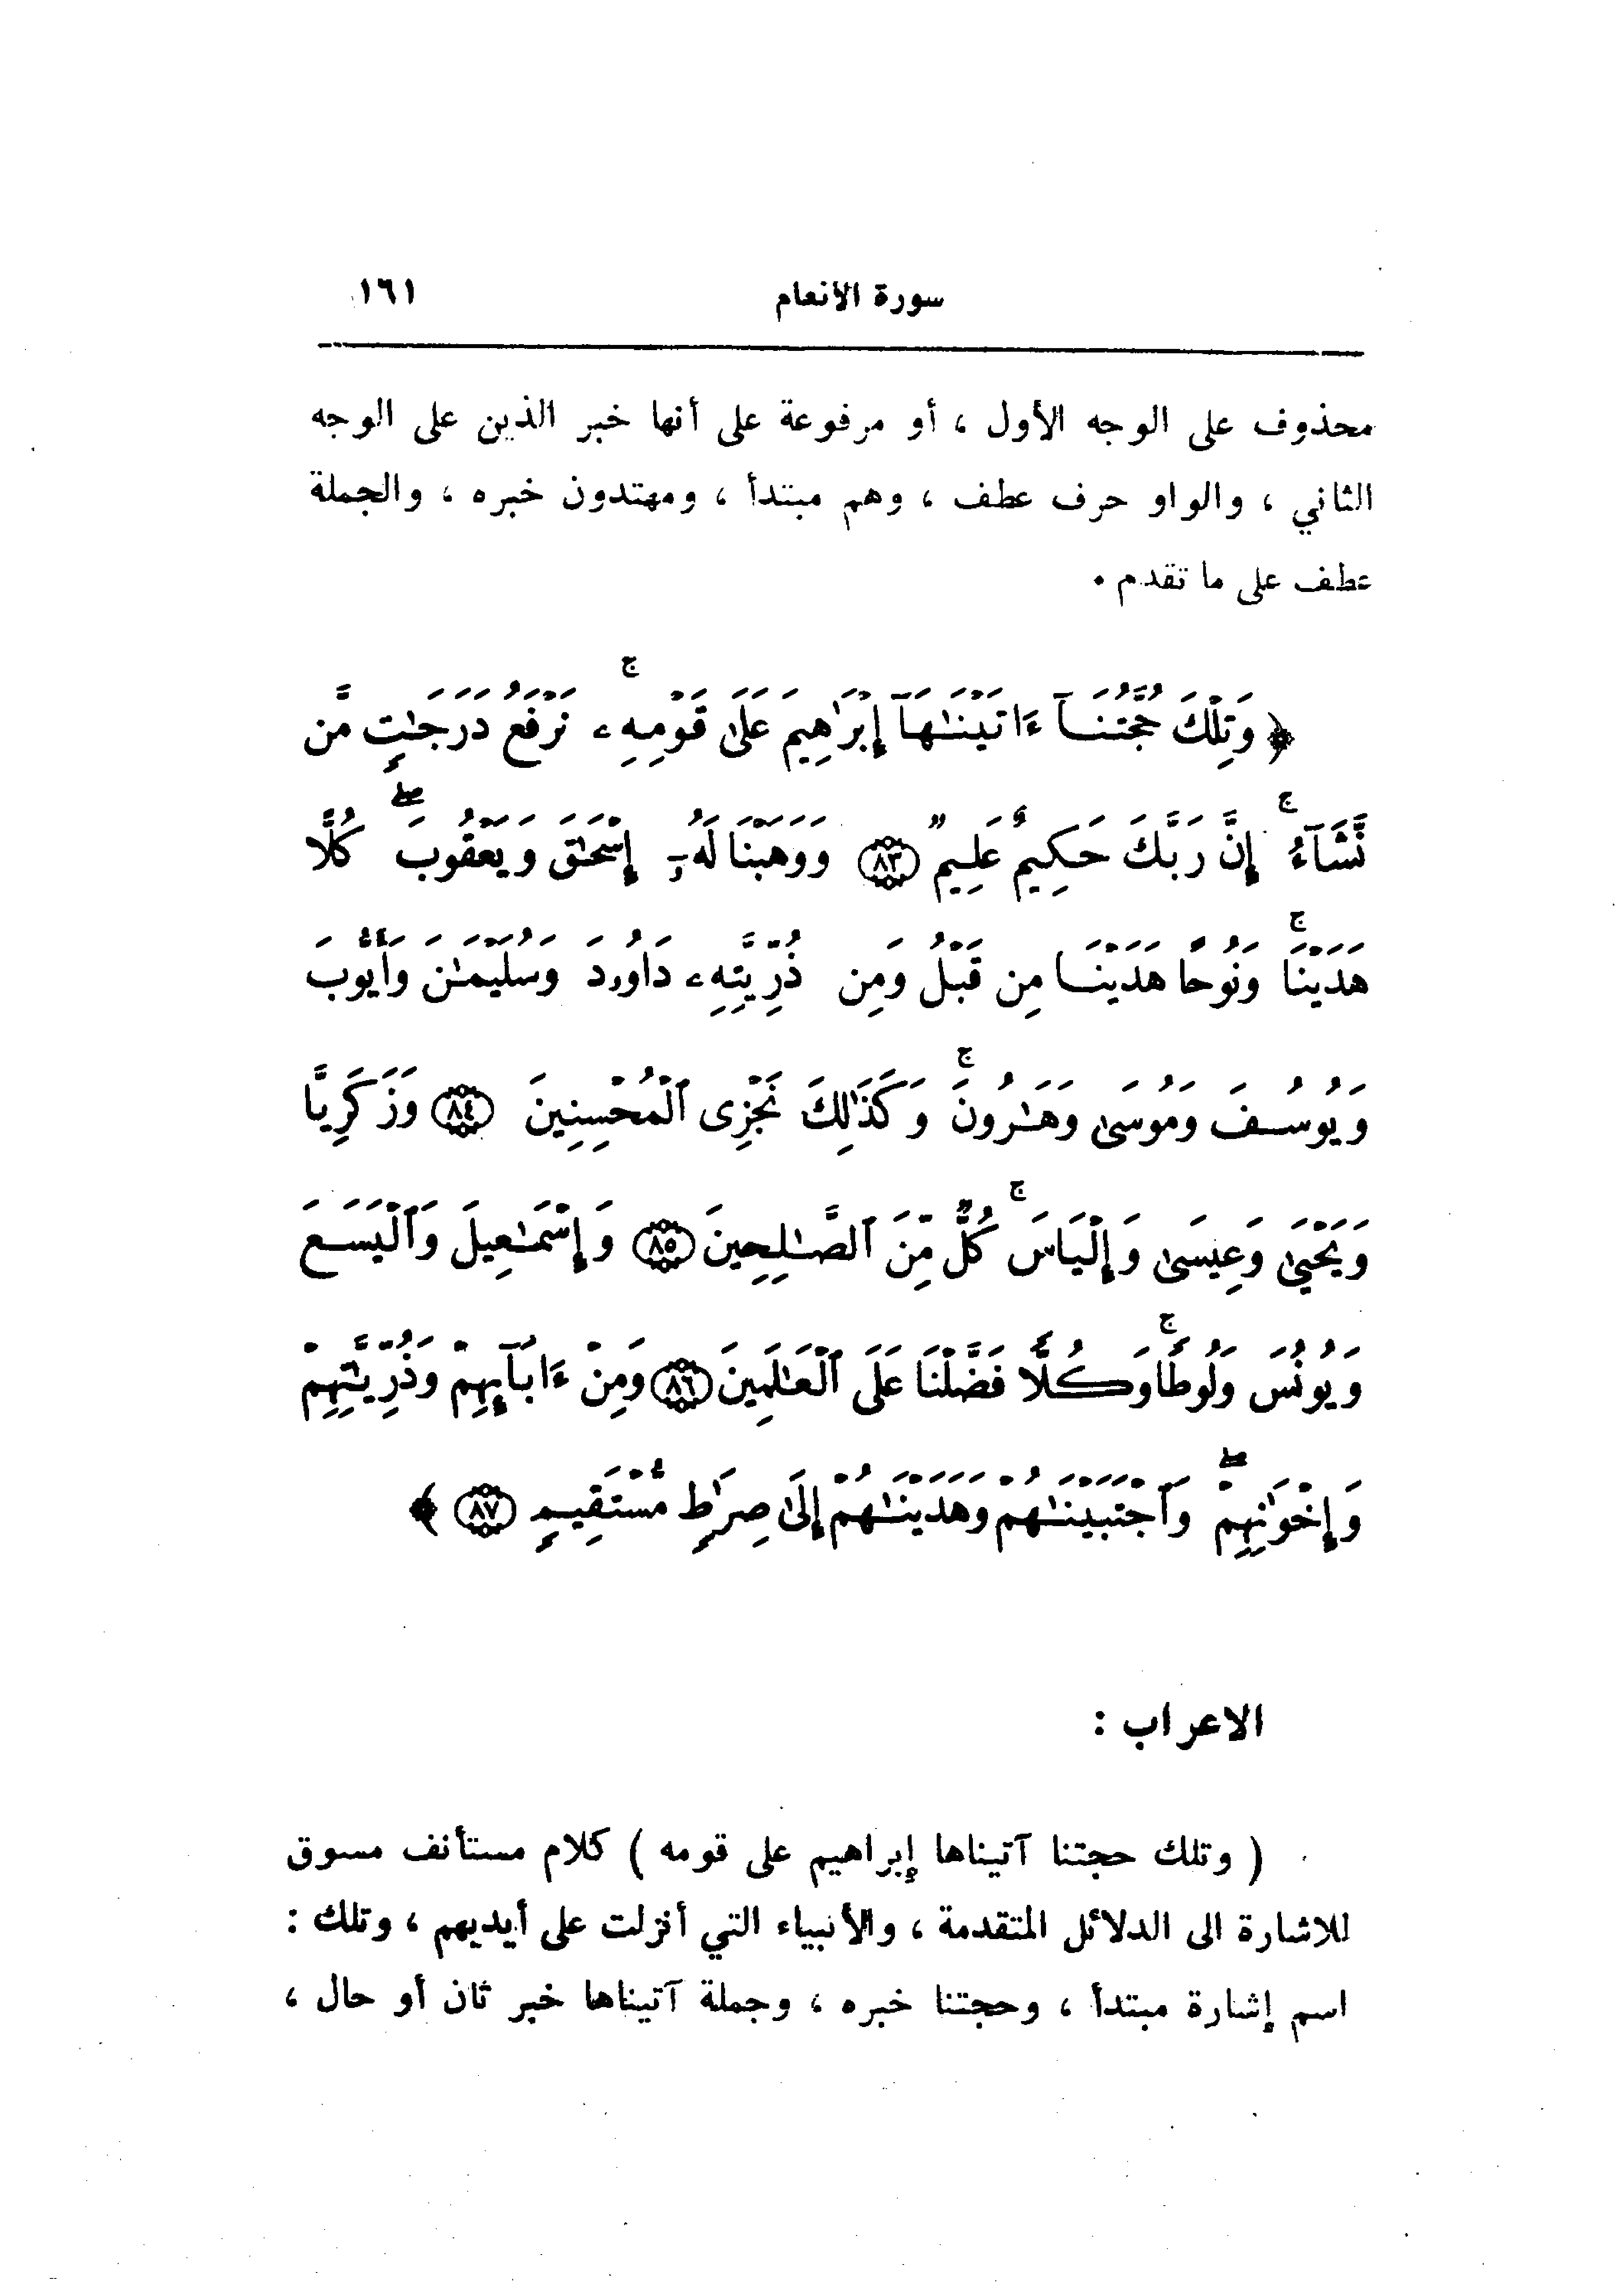 سورة الأنعام ١٦١
محذوف على الوجه الأول ، أو مرفوعة على أنها خبر الذين على الوجه
الثاني ، والواو حرف عطف ، وهم مبتدأ ، ومهتدون خبره ، والجملة
عطف على ما تقدم .
﴿ وَتِلْكَ حُجَّتُنَآ ءَاتَيْنَٰهَآ إِبْرَٰهِيمَ عَلَىٰ قَوْمِهِۦ ۚ نَرْفَعُ دَرَجَٰتٍ مَّن
نَّشَآءُ ۚ إِنَّ رَبَّكَ حَكِيمٌ عَلِيمٌ ﴿٨٣﴾ وَوَهَبْنَا لَهُۥٓ إِسْحَٰقَ وَيَعْقُوبَ ۖ كُلًّا
هَدَيْنَا ۚ وَنُوحًا هَدَيْنَا مِن قَبْلُ وَمِن ذُرِّيَّتِهِۦ دَاوُۥدَ وَسُلَيْمَٰنَ وَأَيُّوبَ
وَيُوسُفَ وَمُوسَىٰ وَهَٰرُونَ ۚ وَكَذَٰلِكَ نَجْزِى ٱلْمُحْسِنِينَ ﴿٨٤﴾ وَزَكَرِيَّا
وَيَحْيَىٰ وَعِيسَىٰ وَإِلْيَاسَ ۚ كُلٌّ مِّنَ ٱلصَّٰلِحِينَ ﴿٨٥﴾ وَإِسْمَٰعِيلَ وَٱلْيَسَعَ
وَيُونُسَ وَلُوطًا ۚ وَكُلًّا فَضَّلْنَا عَلَى ٱلْعَٰلَمِينَ ﴿٨٦﴾ وَمِنْ ءَابَآئِهِمْ وَذُرِّيَّٰتِهِمْ
وَإِخْوَٰنِهِمْ ۖ وَٱجْتَبَيْنَٰهُمْ وَهَدَيْنَٰهُمْ إِلَىٰ صِرَٰطٍ مُّسْتَقِيمٍ ﴿٨٧﴾ ﴾
الاعراب :
( وتلك حجتنا آتيناها إبراهيم على قومه ) كلام مستأنف مسوق
للاشارة الى الدلائل المتقدمة ، والأنبياء التي أنزلت على أيديهم ، وتلك :
اسم إشارة مبتدأ ، وحجتنا خبره ، وجملة آتيناها خبر ثان أو حال ،